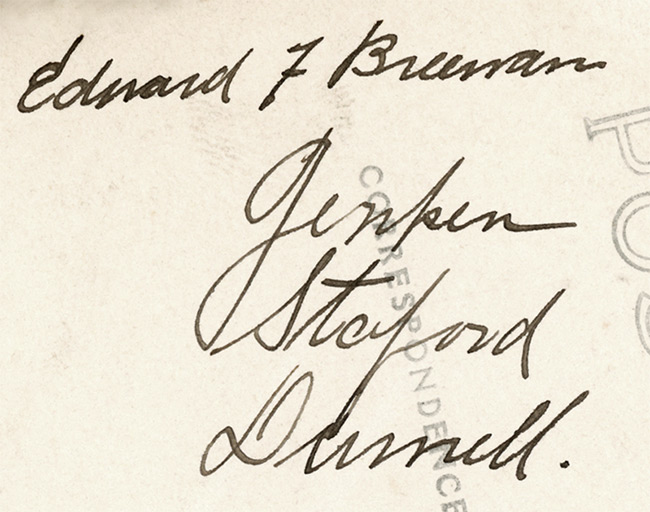 Edward F Breenan
Jenpen
Staford
Durnell.
CORRESPONDENCE
POS